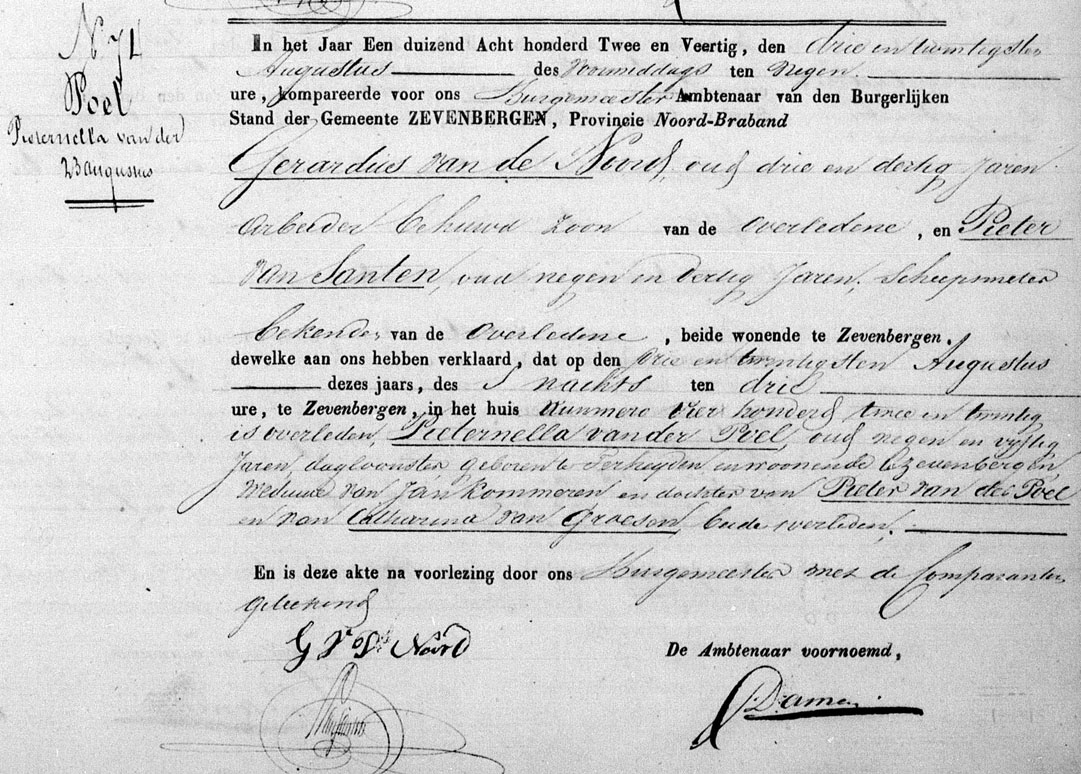 N. 71
Poel
Pieternella van der
23 augustus
In het Jaar Een duizend Acht honderd Twee en Veertig, den drie en twintigsten
Augustus des voormiddags ten Negen
ure, kompareerde voor ons Burgemeester Ambtenaar van den Burgerlijken
Stand der Gemeente ZEVENBERGEN, Provincie Noord-Braband
Gerardus van de Noord, oud drie en dertig Jaren
Arbeider behuwd zoon van de Overledene, en Pieter
van Santen, oud negen en dertig Jaren, Scheepmeter
bekende van de Overledene, beide wonende te Zevenbergen.
dewelke aan ons hebben verklaard, dat op den drie en twintigsten Augustus
dezes jaars, des S nachts ten drie
ure, te Zevenbergen, in het huis Nummero vier honderd twee en twintig
is overleden, Pieternella van der Poel, oud negen en vijftig
Jaren dagloonster geboren te Terheyden en woonende te Zevenbergen
Weduwe van Jan Kommeren en dochter van Pieter van der Poel
en van Catharina van Groesen, beide overleden,
En is deze akte na voorlezing door ons Burgemeester met de Comparanten
geteekend
G Vn De Noord
De Ambtenaar voornoemd,
PvSanten
Damen